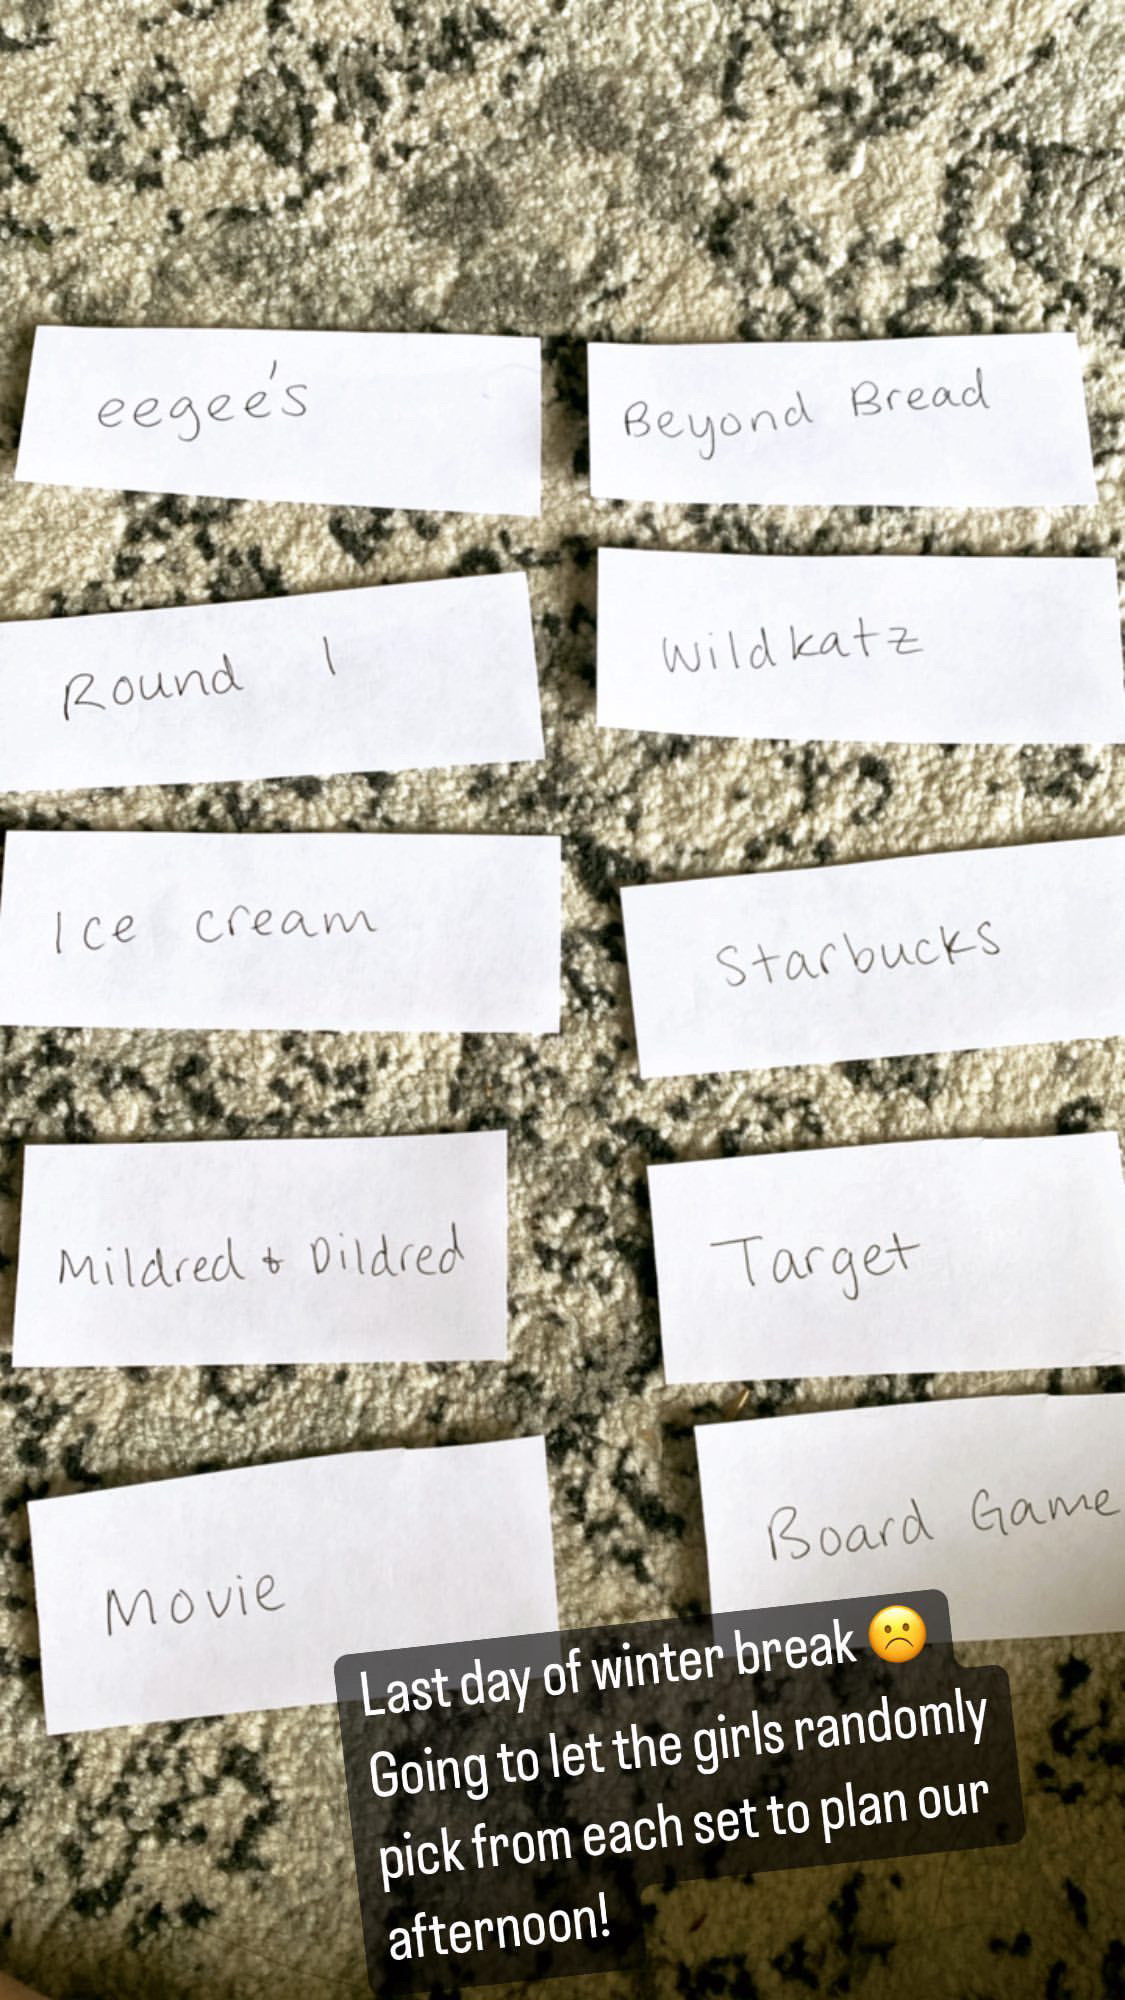 eegee's
Beyond Bread
Round 1
Wildkatz
Ice cream
Starbucks
Mildred & Dildred
Target
Movie
Board Game
Last day of winter break ☹️
Going to let the girls randomly
pick from each set to plan our
afternoon!